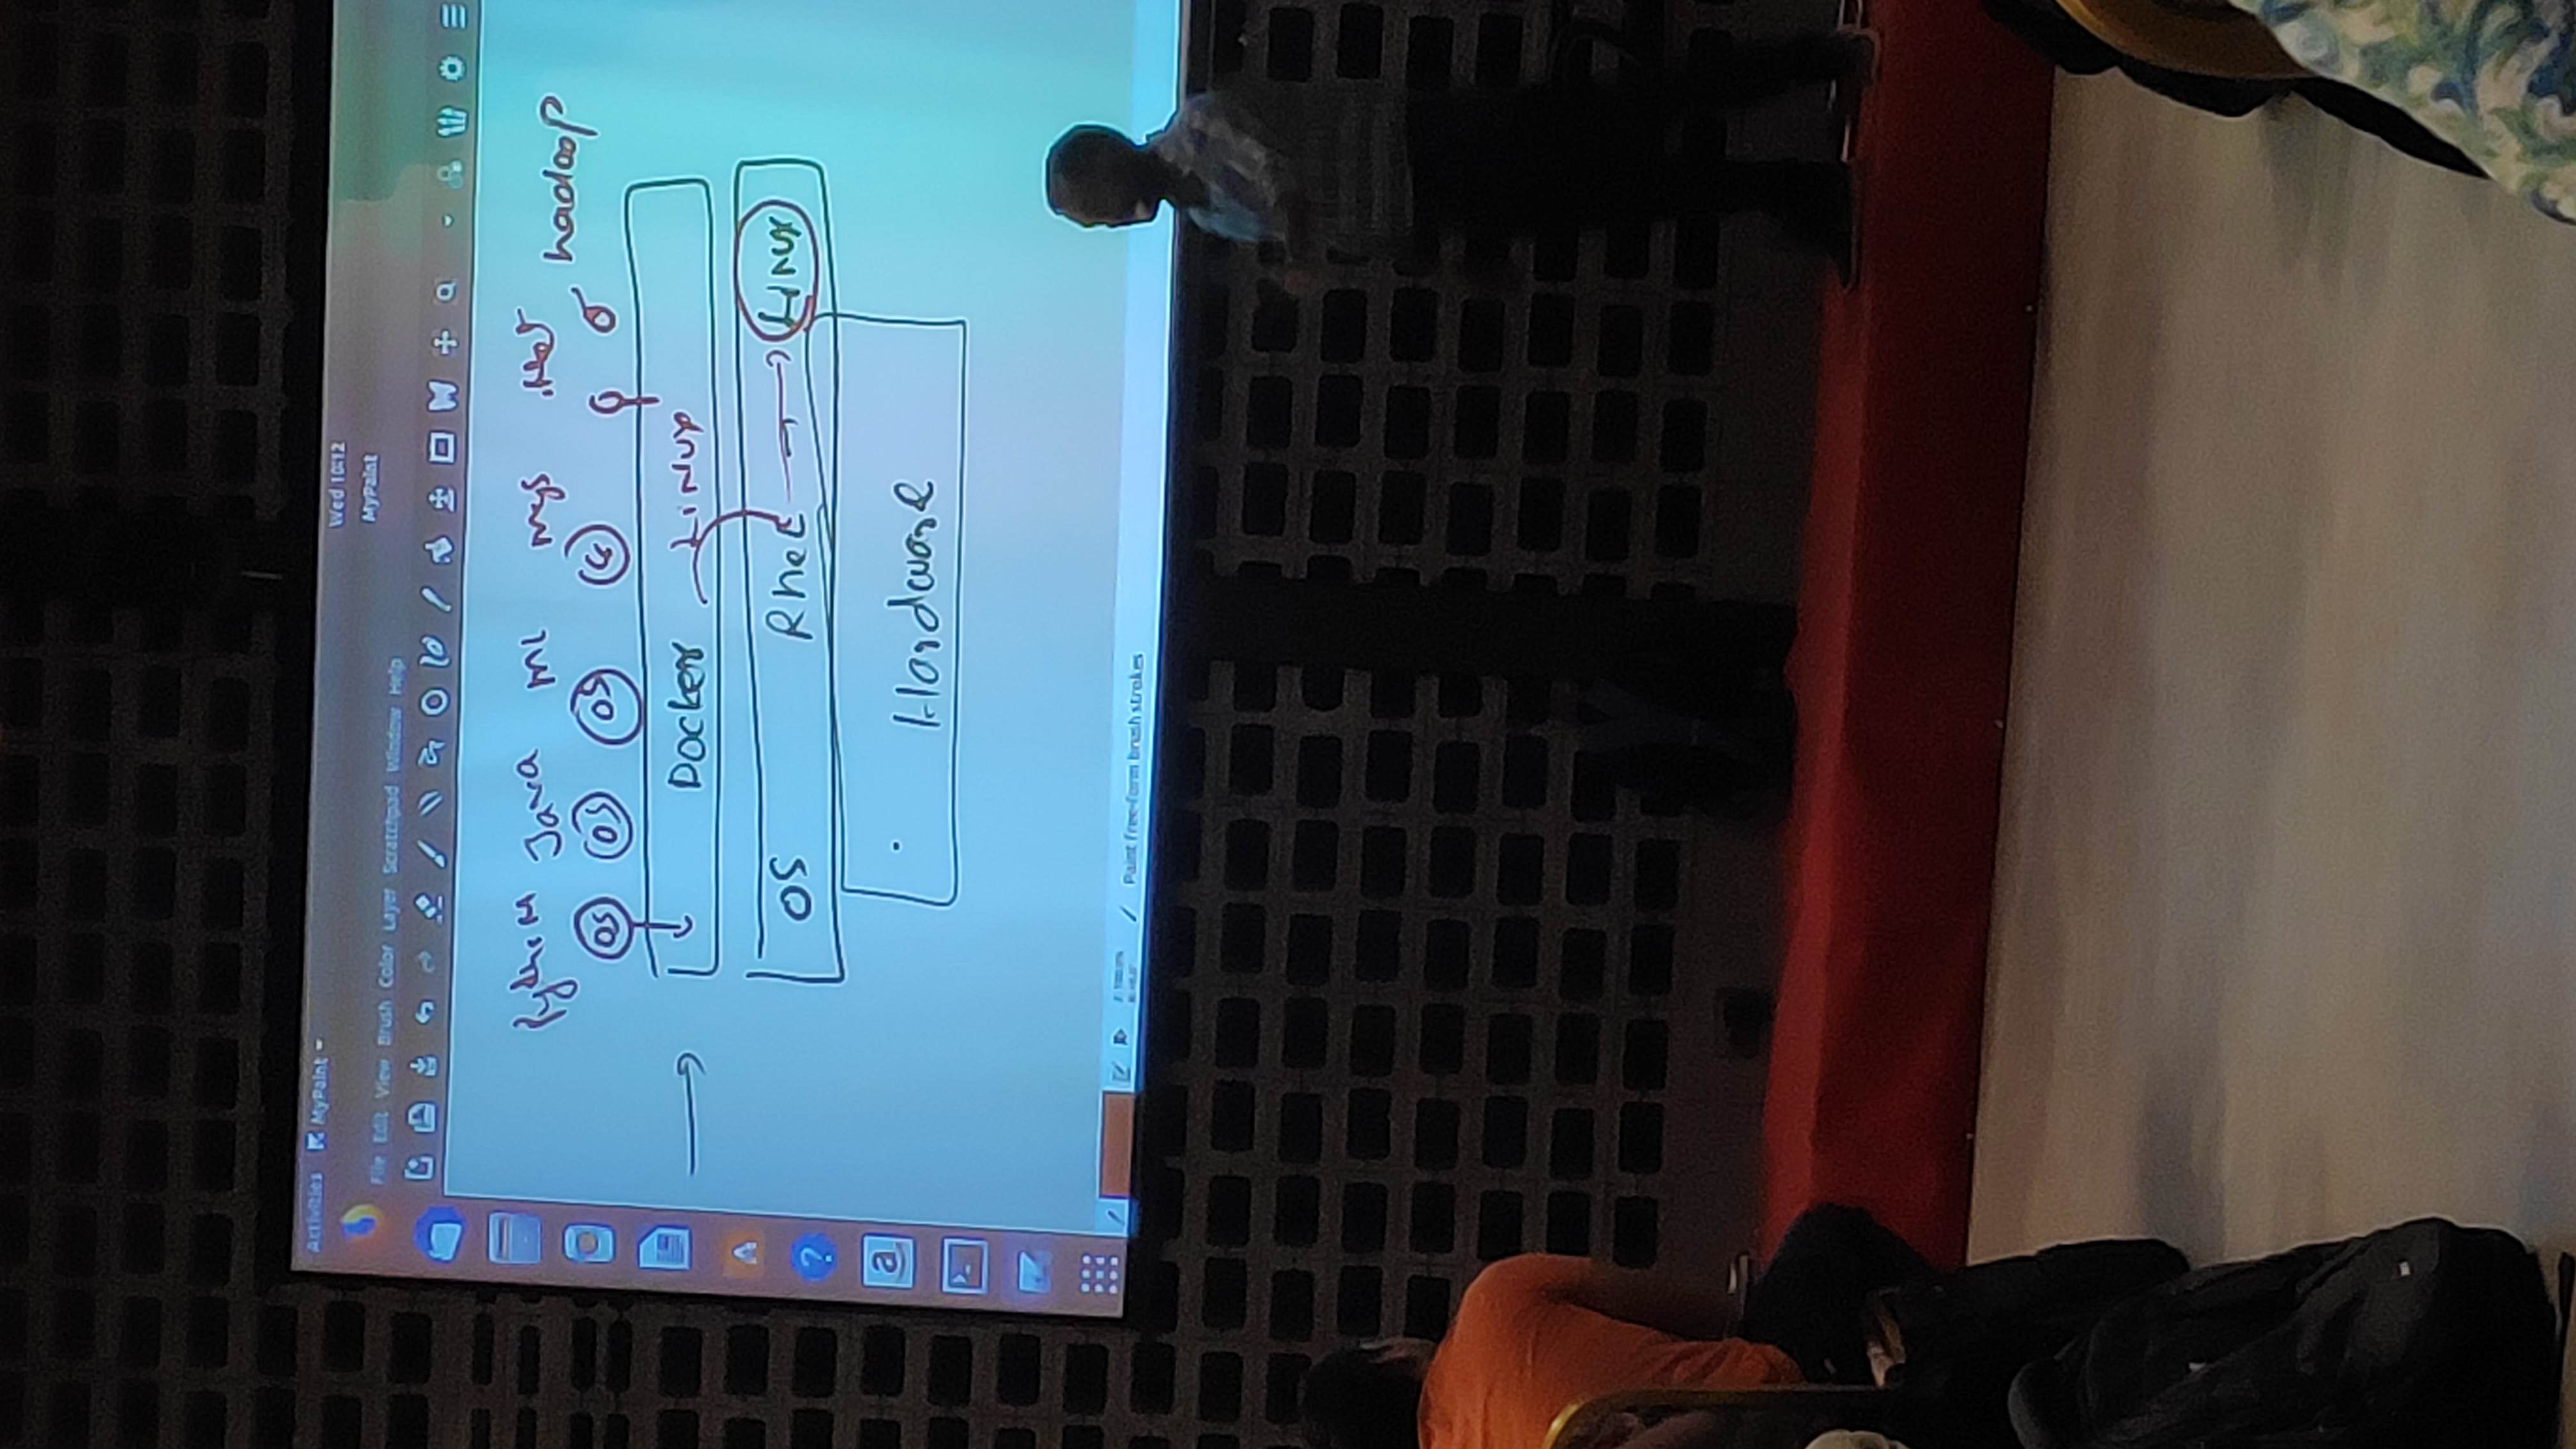 Activities MyPaint
Wed 10:12
MyPaint
File Edit View Brush Color Layer Scratchpad Window Help
Python Java ML Mys .Net hadoop
OS OS OS
Docker Linux
OS Rhel Linux
Hardware
A
?
a
>_
Paint free-form brush strokes